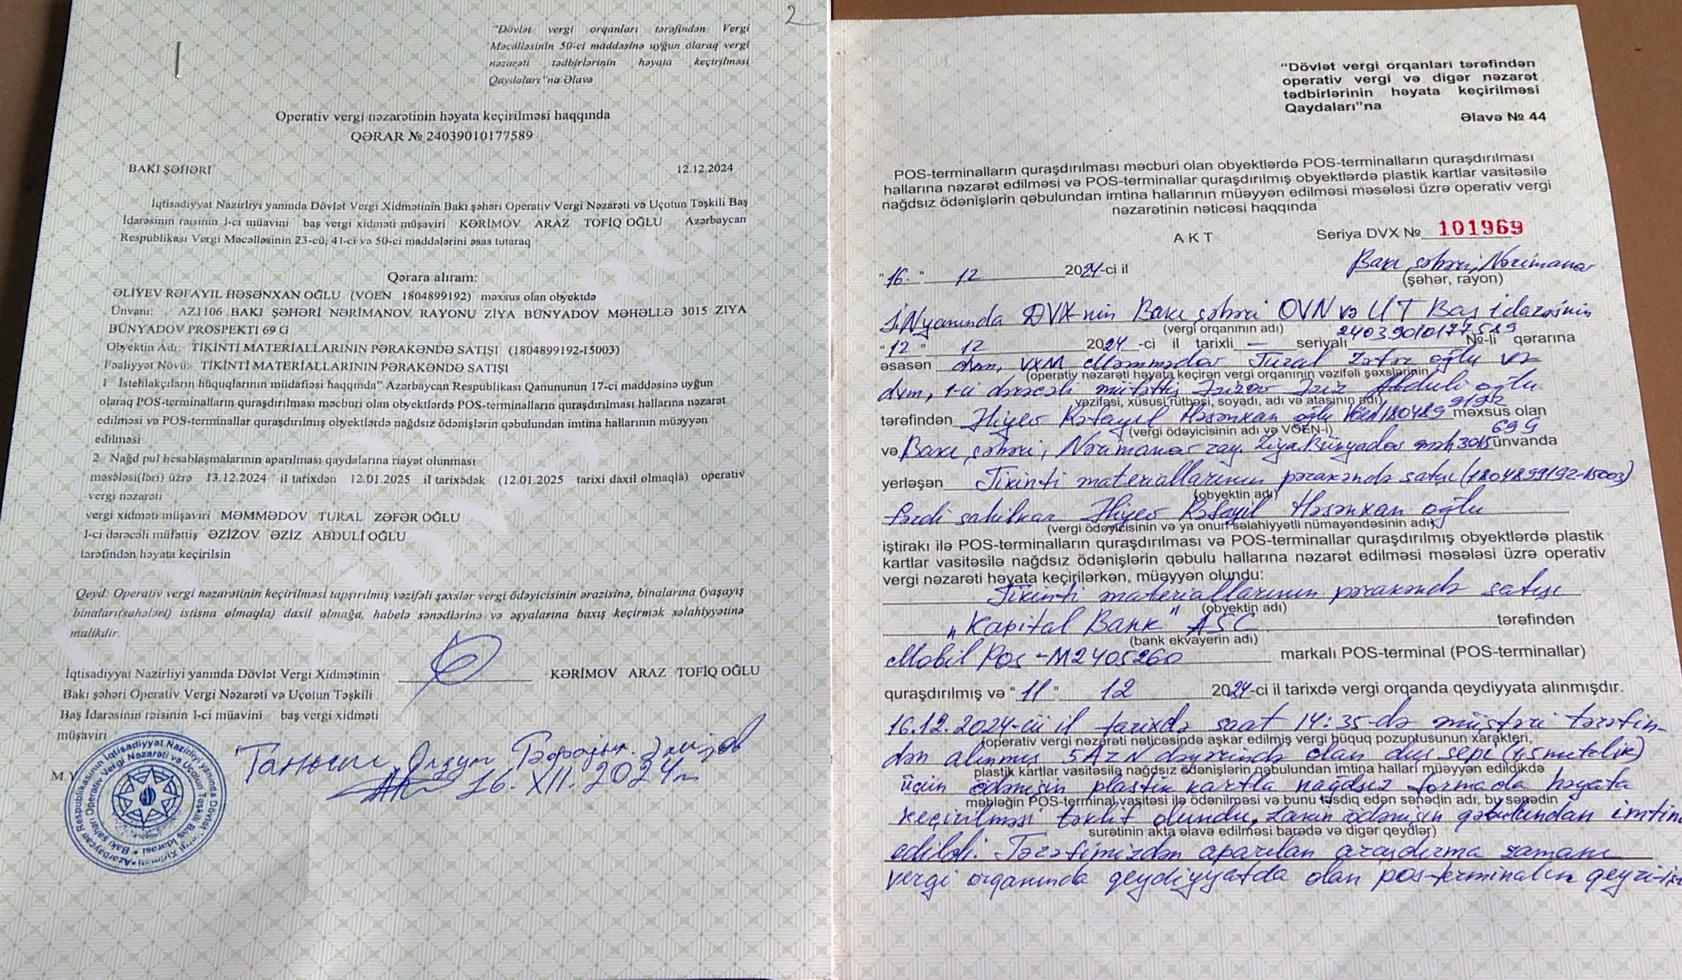 2
"Dövlət vergi orqanları tərəfindən Vergi
Məcəlləsinin 50-ci maddəsinə uyğun olaraq vergi
nəzarəti tədbirlərinin həyata keçirilməsi
Qaydaları"na Əlavə
Operativ vergi nəzarətinin həyata keçirilməsi haqqında
QƏRAR № 24039010177589
BAKI ŞƏHƏRİ 12.12.2024
İqtisadiyyat Nazirliyi yanında Dövlət Vergi Xidmətinin Bakı şəhəri Operativ Vergi Nəzarəti və Uçotun Təşkili Baş
İdarəsinin rəisinin 1-ci müavini baş vergi xidməti müşaviri KƏRİMOV ARAZ TOFİQ OĞLU Azərbaycan
Respublikası Vergi Məcəlləsinin 23-cü, 41-ci və 50-ci maddələrini əsas tutaraq
Qərara alıram:
ƏLİYEV RƏFAYIL HƏSƏNXAN OĞLU (VÖEN 1804899192) məxsus olan obyektdə
Ünvanı: AZ1106 BAKI ŞƏHƏRİ NƏRİMANOV RAYONU ZİYA BÜNYADOV MƏHƏLLƏ 3015 ZIYA
BÜNYADOV PROSPEKTI 69 G
Obyektin Adı: TİKİNTİ MATERİALLARININ PƏRAKƏNDƏ SATIŞI (1804899192-15003)
Fəaliyyət Növü: TİKİNTİ MATERİALLARININ PƏRAKƏNDƏ SATIŞI
1 İstehlakçıların hüquqlarının müdafiəsi haqqında" Azərbaycan Respublikası Qanununun 17-ci maddəsinə uyğun
olaraq POS-terminalların quraşdırılması məcburi olan obyektlərdə POS-terminalların quraşdırılması hallarına nəzarət
edilməsi və POS-terminallar quraşdırılmış obyektlərdə nağdsız ödənişlərin qəbulundan imtina hallarının müəyyən
edilməsi
2 Nağd pul hesablaşmalarının aparılması qaydalarına riayət olunması
məsələsi(ləri) üzrə 13.12.2024 il tarixdən 12.01.2025 il tarixədək (12.01.2025 tarixi daxil olmaqla) operativ
vergi nəzarəti
vergi xidməti müşaviri MƏMMƏDOV TURAL ZƏFƏR OĞLU
1-ci dərəcəli müfəttiş ƏZİZOV ƏZİZ ABDULİ OĞLU
tərəfindən həyata keçirilsin
Qeyd: Operativ vergi nəzarətinin keçirilməsi tapşırılmış vəzifəli şəxslər vergi ödəyicisinin ərazisinə, binalarına (yaşayış
binaları(sahələri) istisna olmaqla) daxil olmağa, habelə sənədlərinə və əşyalarına baxış keçirmək səlahiyyətinə
malikdir.
İqtisadiyyat Nazirliyi yanında Dövlət Vergi Xidmətinin KƏRİMOV ARAZ TOFİQ OĞLU
Bakı şəhəri Operativ Vergi Nəzarəti və Uçotun Təşkili
Baş İdarəsinin rəisinin 1-ci müavini baş vergi xidməti
müşaviri
M.Y
16.XII.2024
"Dövlət vergi orqanları tərəfindən
operativ vergi və digər nəzarət
tədbirlərinin həyata keçirilməsi
Qaydaları"na
Əlavə № 44
POS-terminalların quraşdırılması məcburi olan obyektlərdə POS-terminalların quraşdırılması
hallarına nəzarət edilməsi və POS-terminallar quraşdırılmış obyektlərdə plastik kartlar vasitəsilə
nağdsız ödənişlərin qəbulundan imtina hallarının müəyyən edilməsi məsələsi üzrə operativ vergi
nəzarətinin nəticəsi haqqında
AKT Seriya DVX № 101969
"16" 12 2024-ci il Bakı şəhəri, Nərimanov
(şəhər, rayon)
İ.N yanında DVX-nin Bakı şəhəri OVN və UT Baş idarəsinin
(vergi orqanının adı) 24039010177589
"12" 12 2024-ci il tarixli — seriyalı №-li qərarına
əsasən dvm, VXM Məmmədov Tural Zəfər oğlu və
(operativ nəzarəti həyata keçirən vergi orqanının vəzifəli şəxslərinin
dvm, 1-ci dərəcəli müfəttiş Əzizov Əziz Abduli oğlu
vəzifəsi, xüsusi rütbəsi, soyadı, adı və atasının adı) 9192
tərəfindən Əliyev Rəfayıl Həsənxan oğlu VÖEN 180489 məxsus olan
(vergi ödəyicisinin adı və VÖEN-i) 69G
və Bakı şəhəri, Nərimanov ray. Ziya Bünyadov məh 3015 ünvanda
yerləşən Tikinti materiallarının pərakəndə satışı (1804899192-15003)
(obyektin adı)
fərdi sahibkar Əliyev Rəfayıl Həsənxan oğlu
(vergi ödəyicisinin və ya onun səlahiyyətli nümayəndəsinin adı)
iştirakı ilə POS-terminalların quraşdırılması və POS-terminallar quraşdırılmış obyektlərdə plastik
kartlar vasitəsilə nağdsız ödənişlərin qəbulu hallarına nəzarət edilməsi məsələsi üzrə operativ
vergi nəzarəti həyata keçirilərkən, müəyyən olundu:
Tikinti materiallarının pərakəndə satışı
(obyektin adı)
"Kapital Bank" ASC tərəfindən
(bank ekvayerin adı)
Mobil Pos-M2405260 markalı POS-terminal (POS-terminallar)
quraşdırılmış və "11" 12 2024-ci il tarixdə vergi orqanda qeydiyyata alınmışdır.
16.12.2024-cü il tarixdə saat 14:35-də müştəri tərəfin-
(operativ vergi nəzarəti nəticəsində aşkar edilmiş vergi hüquq pozuntusunun xarakteri,
dən alınmış 5 AZN dəyərində olan duş şepi (1,5 metrlik)
plastik kartlar vasitəsilə nağdsız ödənişlərin qəbulundan imtina halları müəyyən edildikdə
üçün ödənişin plastik kartla nağdsız formada həyata
məbləğin POS-terminal vasitəsi ilə ödənilməsi və bunu təsdiq edən sənədin adı, bu sənədin
keçirilməsi təklif olundu, lakin ödənişin qəbulundan imtina
surətinin akta əlavə edilməsi barədə və digər qeydlər)
edildi. Tərəfimizdən aparılan araşdırma zamanı
vergi orqanında qeydiyyatda olan pos-terminalın